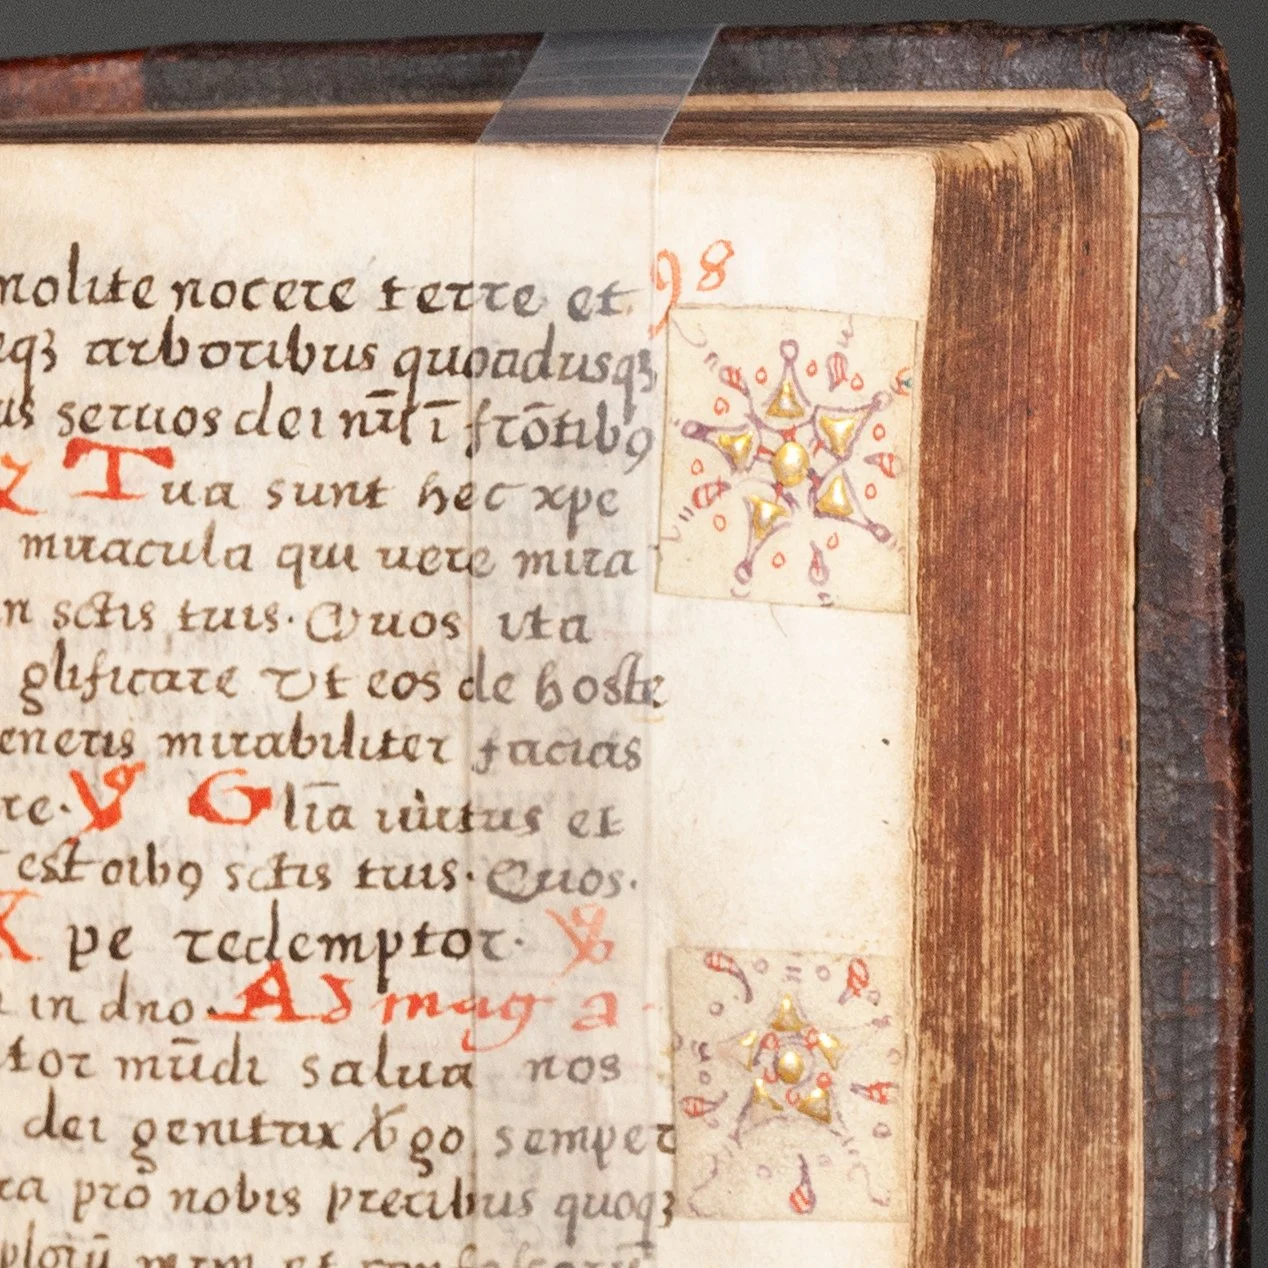 98
nolite nocere terre et
eqꝫ arboribus quoadusqꝫ
us seruos dei nr̄i ī frōtibꝯ
Tua sunt hec xpe
miracula qui uere mira
in sctis tuis. Quos ita
glificare Ut eos de hoste
eneris mirabiliter facias
re. V Glīa uirtus et
est oibꝯ sctis tuis. Quos.
Xpe redemptor. V
in dno. Ad mag a
tor mūdi salua nos
dei genitrix v̄go semper
ra prō nobis precibus quoqꝫ